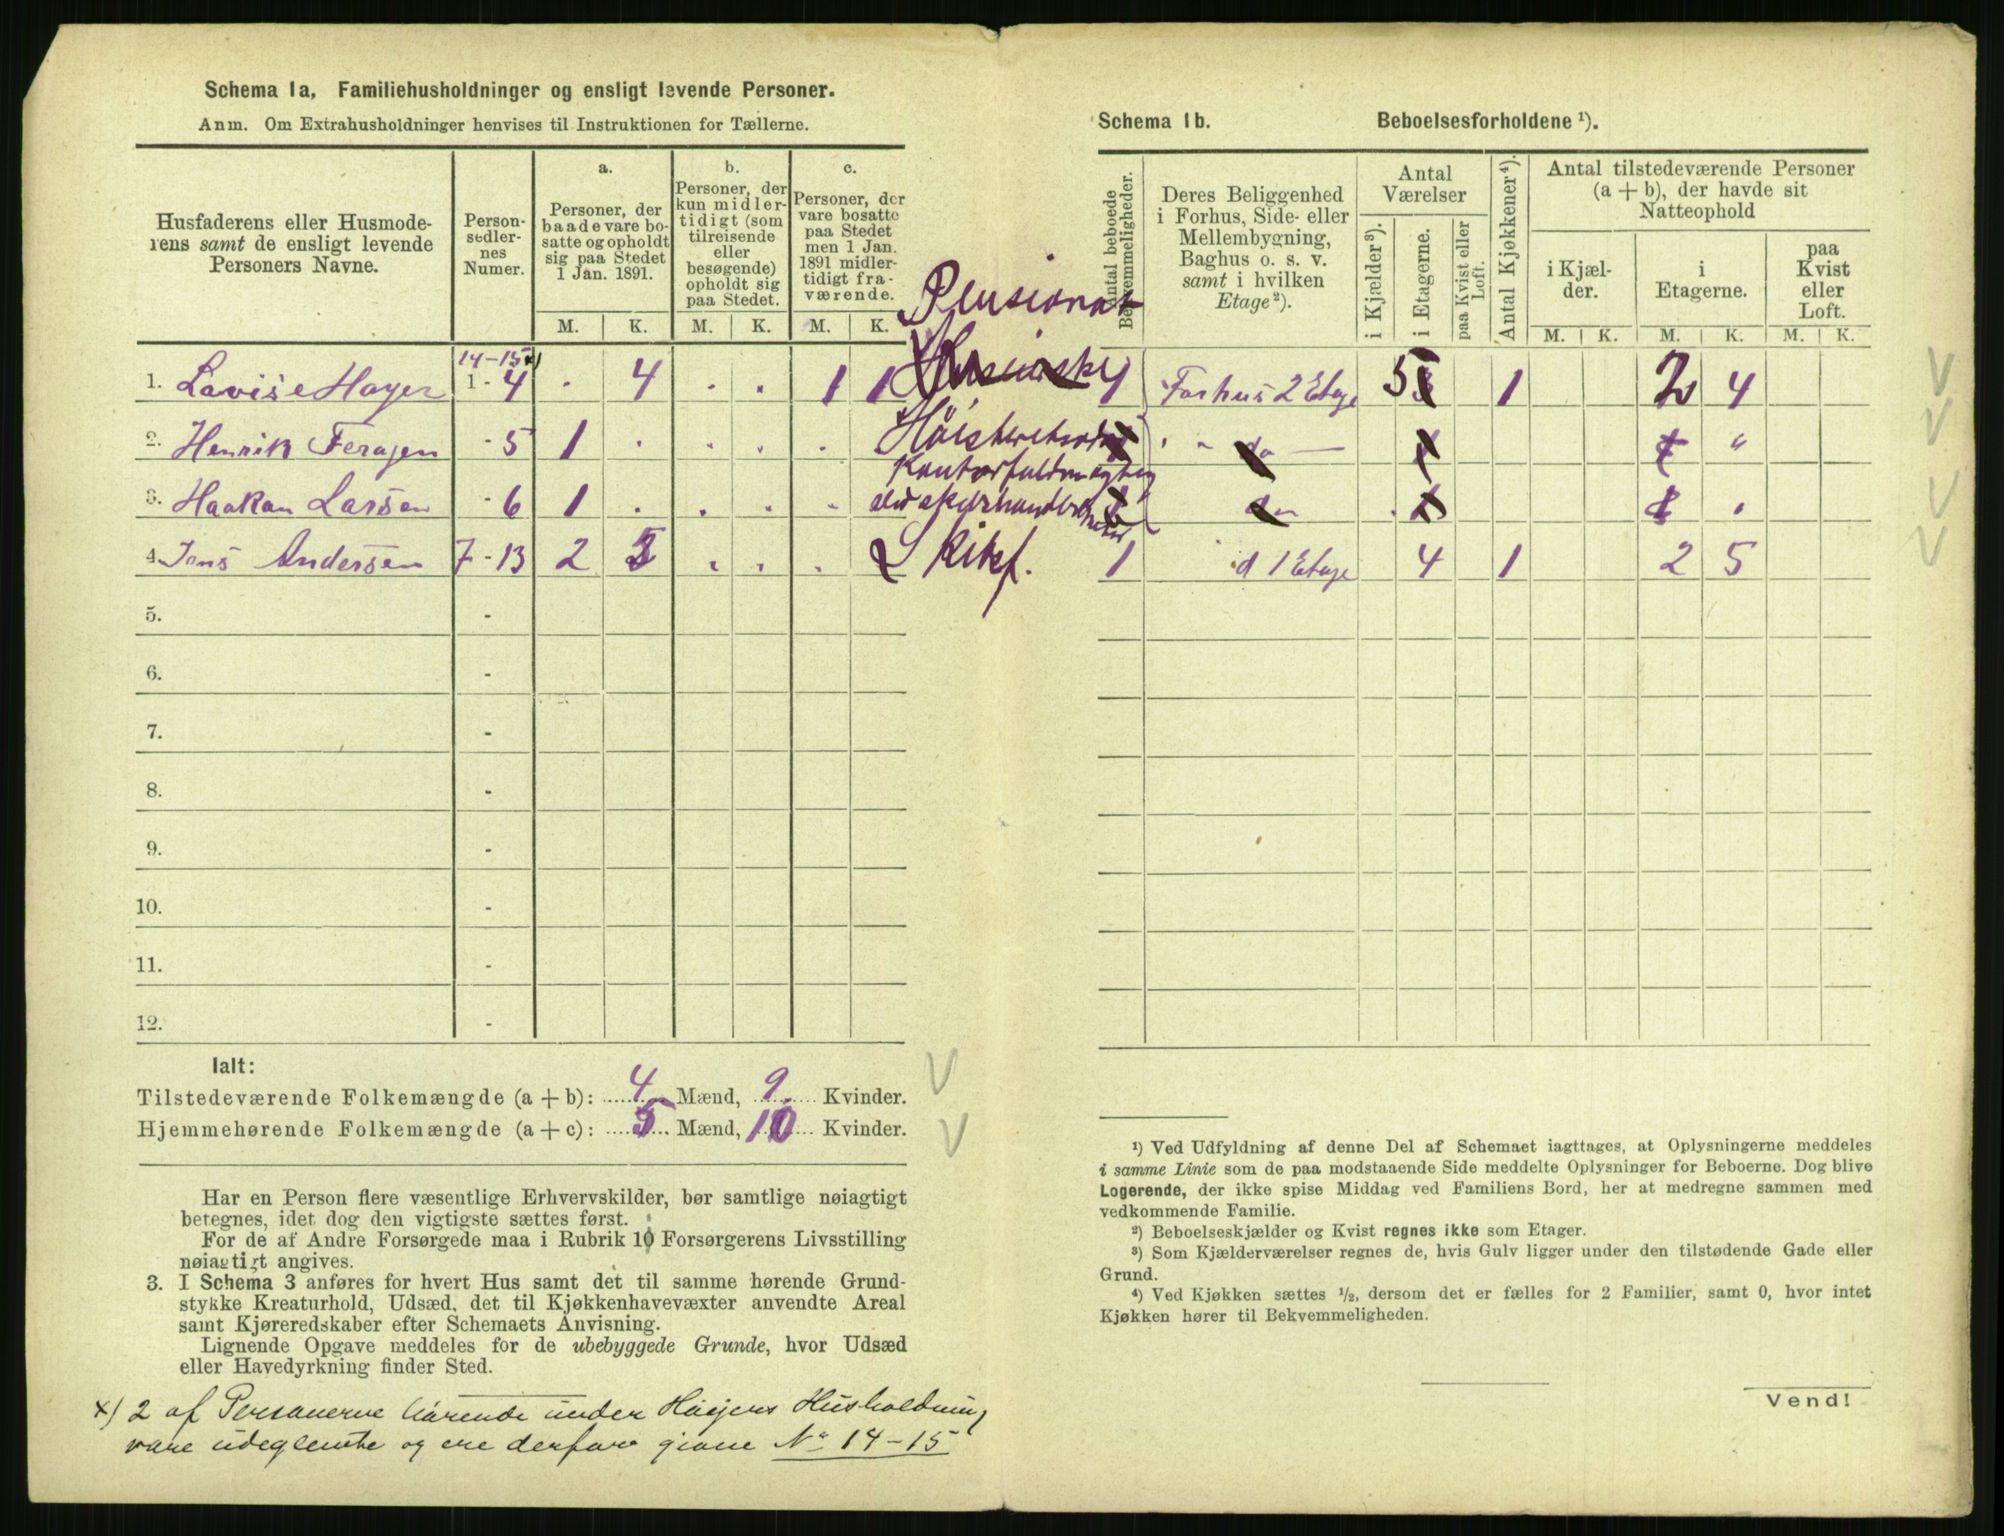 Schema 1a, Familiehusholdninger og ensligt levende Personer.
Anm. Om Extrahusholdninger henvises til Instruktionen for Tællerne.
Husfaderens eller Husmode-
rens samt de ensligt levende
Personers Navne.
Person-
sedler-
nes
Numer.
a.
Personer, der
baade vare bo-
satte og opholdt
sig paa Stedet
1 Jan. 1891.
b.
Personer, der
kun midler-
tidigt (som
tilreisende
eller
besøgende)
opholdt sig
paa Stedet.
c.
Personer, der
vare bosatte
paa Stedet
men 1 Jan.
1891 midler-
tidigt fra-
værende.
M. K. M. K. M. K.
14-15 x)
1. Lovise Høyer 1 - 4 . 4 . . 1 1
2. Henrik Feragen - 5 1 . . . .
3. Haakon Larsen - 6 1 . . . .
4. Jens Andersen 7 - 13 2 5 . . .
5. -
6. -
7. -
8. -
9. -
10. -
11. -
12. -
Ialt:
Tilstedeværende Folkemængde (a + b): 4 Mænd, 9 Kvinder.
Hjemmehørende Folkemængde (a + c): 5 Mænd, 10 Kvinder.
Har en Person flere væsentlige Erhvervskilder, bør samtlige nøiagtigt
betegnes, idet dog den vigtigste sættes først.
For de af Andre Forsørgede maa i Rubrik 10 Forsørgerens Livsstilling
nøiagtigt angives.
3. I Schema 3 anføres for hvert Hus samt det til samme hørende Grund-
stykke Kreaturhold, Udsæd, det til Kjøkkenhavevæxter anvendte Areal
samt Kjøreredskaber efter Schemaets Anvisning.
Lignende Opgave meddeles for de ubebyggede Grunde, hvor Udsæd
eller Havedyrkning finder Sted.
x) 2 af Personerne hørende under Høiers Husholdning
vare udeglemte og ere derfor givne No 14-15
Pensionat
Høiesteretsad
Kontorfuldmægtig
Schema 1b. Beboelsesforholdene ¹).
Antal beboede
Bekvemmeligheder.
Deres Beliggenhed
i Forhus, Side- eller
Mellembygning,
Baghus o. s. v.
samt i hvilken
Etage ²).
Antal
Værelser
i Kjælder ³).
i Etagerne.
paa Kvist eller
Loft.
Antal Kjøkkener ⁴).
Antal tilstedeværende Personer
(a + b), der havde sit
Natteophold
i Kjæl-
der.
i
Etagerne.
paa
Kvist
eller
Loft.
M. K. M. K. M. K.
1 Forhus 2 Etage 5 1 2 4
" do 1 "
do 1 .
1 d 1 Etage 4 1 2 5
¹) Ved Udfyldning af denne Del af Schemaet iagttages, at Oplysningerne meddeles
i samme Linie som de paa modstaaende Side meddelte Oplysninger for Beboerne. Dog blive
Logerende, der ikke spise Middag ved Familiens Bord, her at medregne sammen med
vedkommende Familie.
²) Beboelseskjælder og Kvist regnes ikke som Etager.
³) Som Kjælderværelser regnes de, hvis Gulv ligger under den tilstødende Gade eller
Grund.
⁴) Ved Kjøkken sættes ½, dersom det er fælles for 2 Familier, samt 0, hvor intet
Kjøkken hører til Bekvemmeligheden.
Vend!